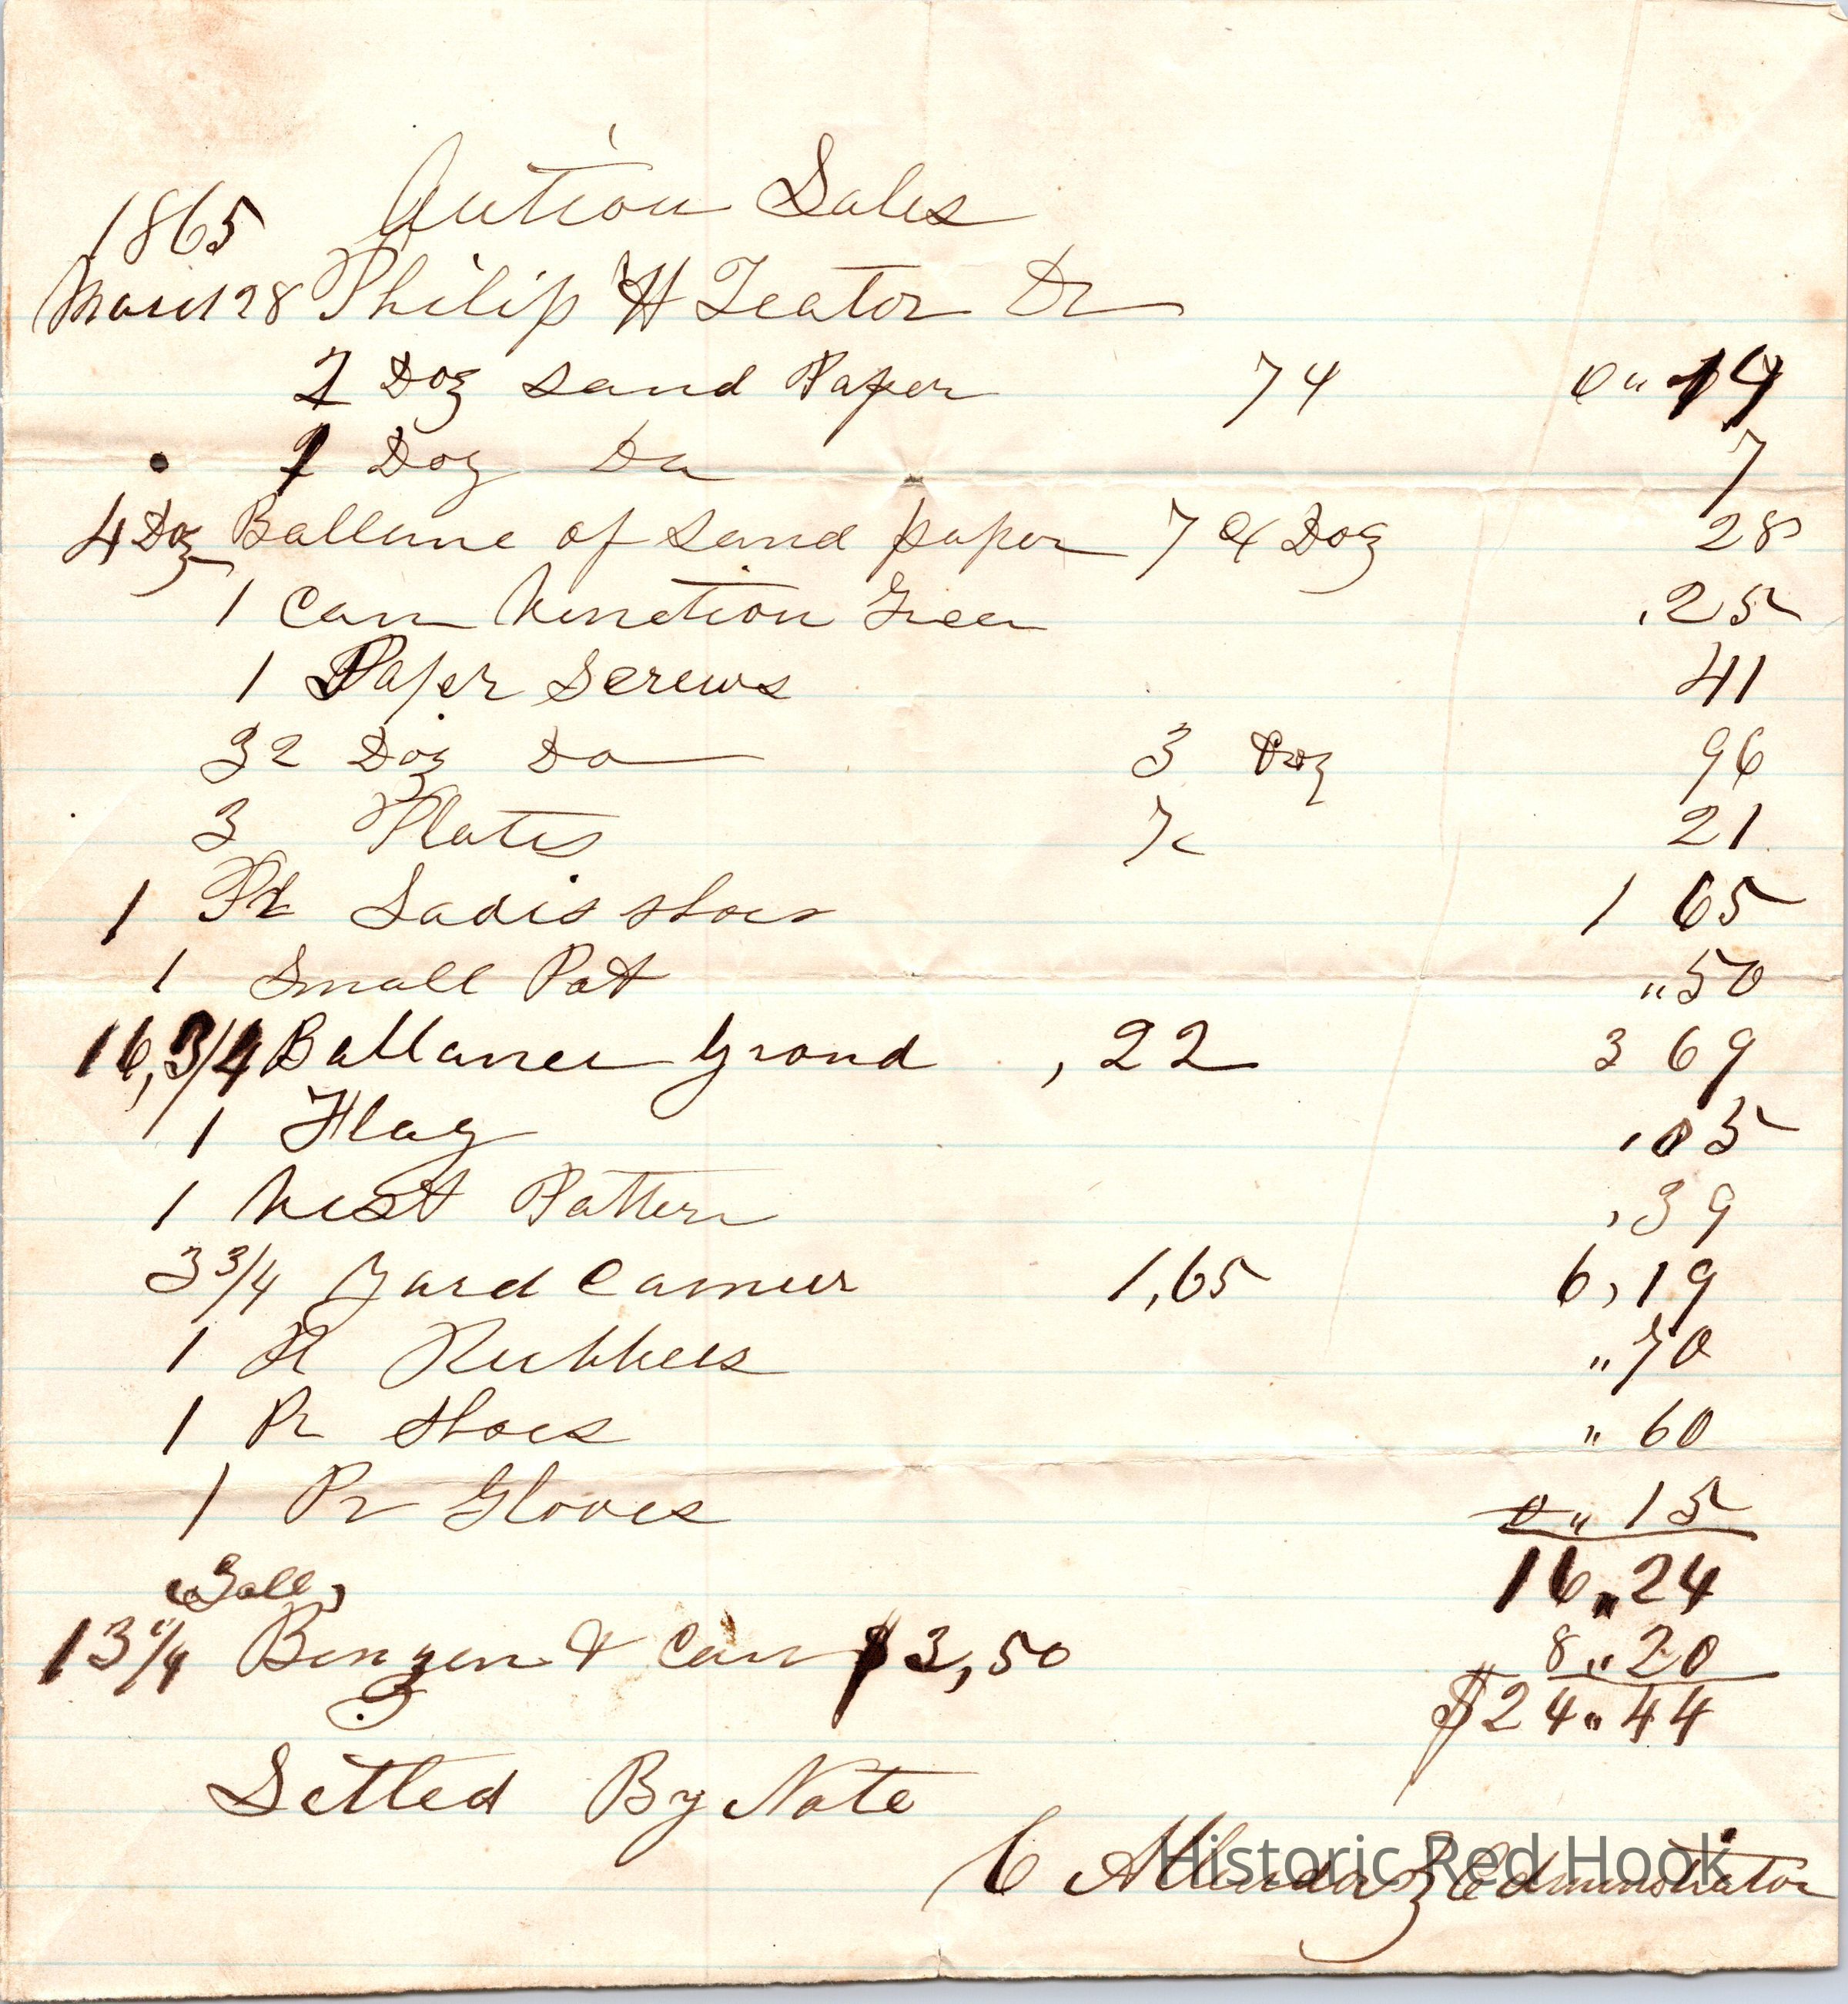 Aution Sales
1865
March 28 Philip H Teator Dr
2 Doz Sand Paper 7 4 0 " 14
1 Doz Do 7
4 Doz Ballance of Sand paper 7 Doz 28
1 Can Venetion Green .25
1 Paper Screws 41
32 Doz Do 3 Doz 96
3 Plates 7c 21
1 Pr Ladis Shoes 1 65
1 Small Pot " 50
16,3/4 Ballance 22 3 69
1 Flag , 05
1 Vest Pattern , 39
3 3/4 Yard 1,65 6,19
1 Pr Rubbers " 70
1 Pr Shoes " 60
1 Pr Gloves 0 " 15
16 " 24
(Gall)
13 1/4 Benzen & Can $3,50 8 " 20
$24 " 44
Setled By Note
C Allendorf Edminstrator
Historic Red Hook